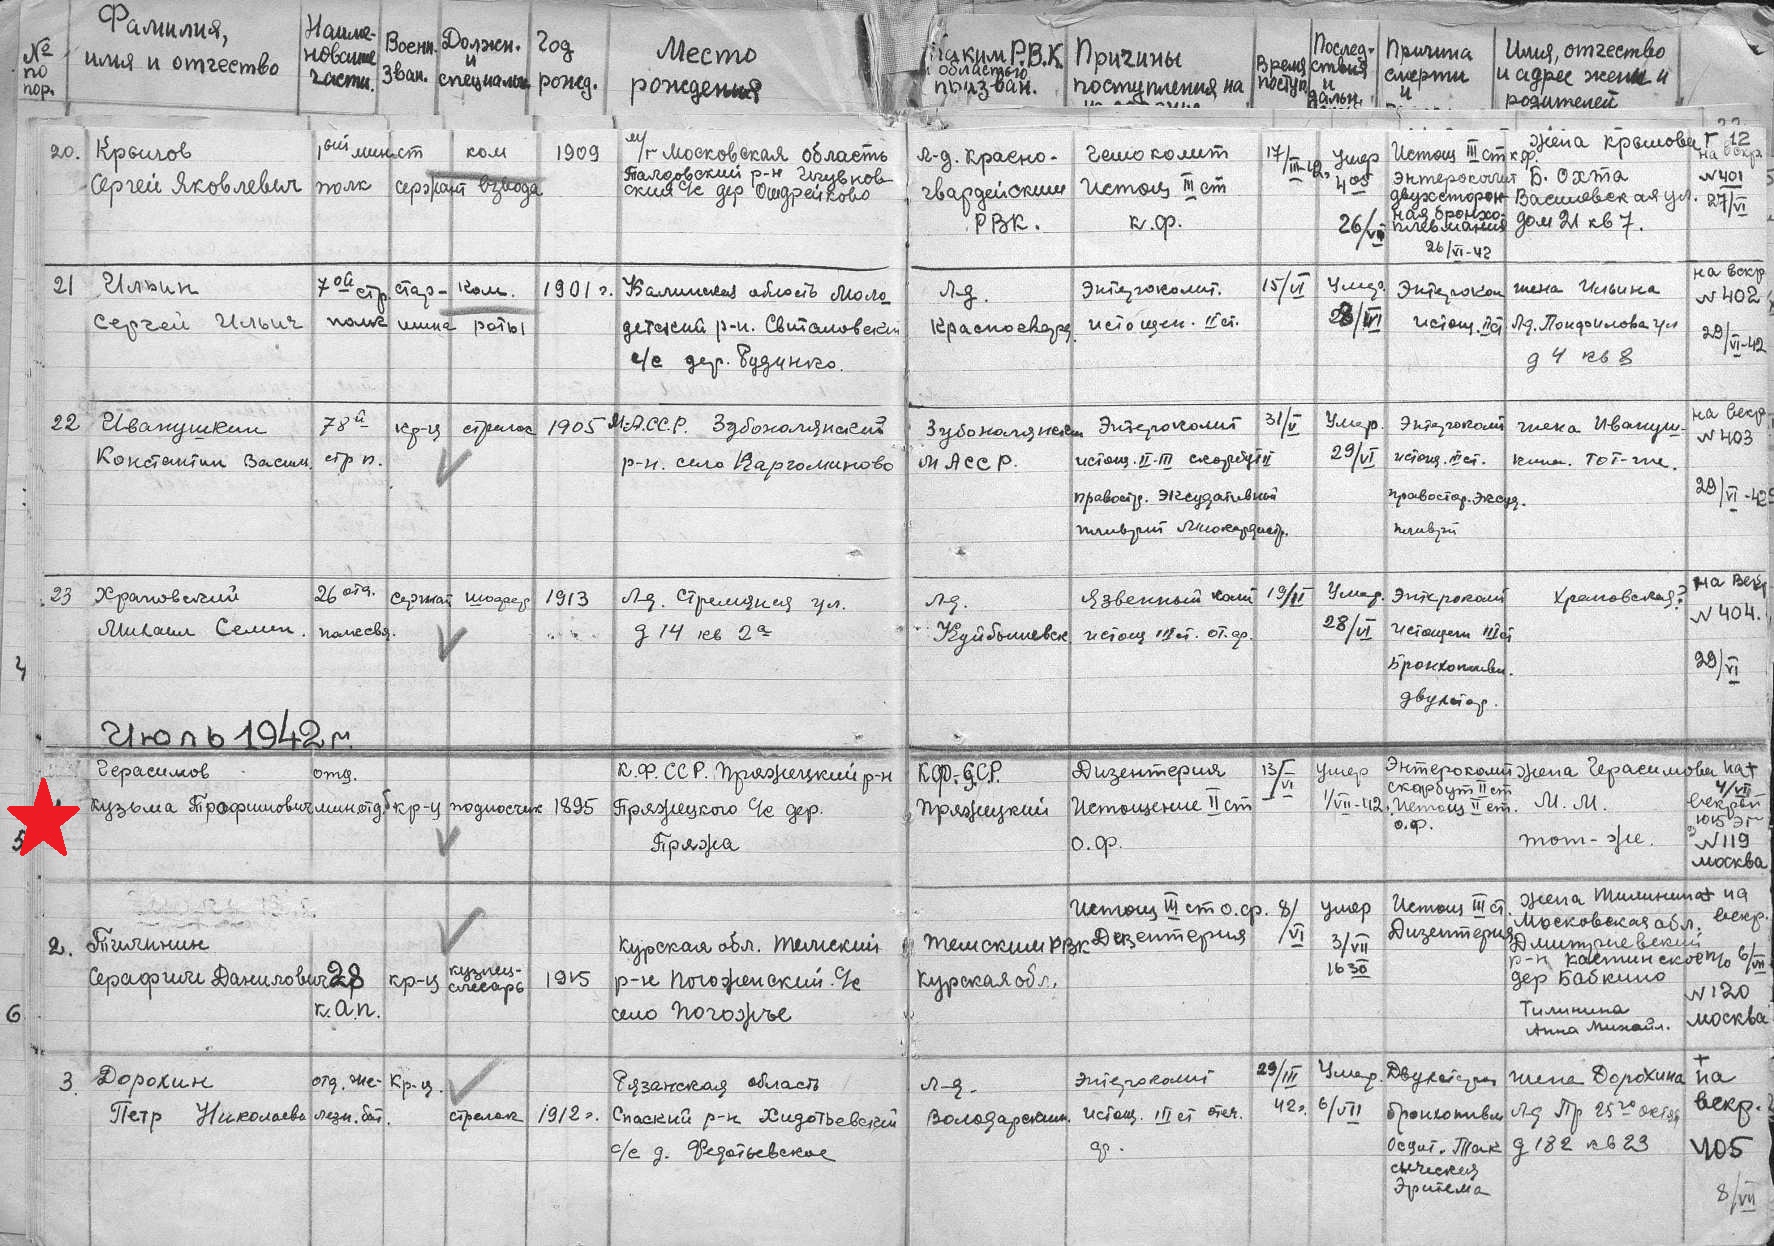 № по пор.
Фамилия, имя и отчество
Наиме-
нование
части.
Воен.
Зван.
Должн.
и
специальн
Год
рожд.
Место
рождения
Каким Р.В.К.
и области
призван.
Причины
поступления на
Время
поступ.
Послед-
ствия
и
дальн.
Причина
смерти
и
Имя, отчество
и адрес жены и
родителей
20. Крылов
Сергей Яковлевич
полк
ст
сержант
ком
взвода
1909
м/г Московская область
Талдовский р-н
с/с дер Ошдрейково
Л-д. Красно-
гвардейским
РВК.
Гемоколит
Истощ III ст
к.ф.
17/III-42.
Умер
405
26/VI
Истощ III ст к.ф.
энтероколит
двухсторон-
ная бронхо-
пневмания
26/VI-42
жена Крылова
Б. Охта
Василевская ул.
дом 21 кв 7.
Г 12
на вскр.
N 401
27/VI
21 Ильин
Сергей Ильич
7ой стр
полк
стар-
шина
ком.
роты
1901 г.
Калинская область Моло
детский р-н.
с/с дер. Рудинко.
Л-д.
Красногвард.
Энтероколит.
истощен. II ст.
15/VI
Умер.
28/VI
Энтерокол
истощ. II ст
жена Ильина
Лд.
д 4 кв 8
на вскр
N 402
29/VI-42
22 Иванушкин
Константин Васил.
78й
стр п.
кр-ц
стрелок
1905
М.А.ССР. Зубополянский
р-н. село Каргоминово
Зубополянским
М АССР.
Энтероколит
истощ. II-III скорбут II
правостр. Эксудативный
плеврит
31/V
Умер.
29/VI
Энтероколит
истощ. II ст.
правостор. эксуд.
плеврит
жена Ивануш-
кина. тот-же.
на вскр
N 403
29/VI-42
23 Храповский
Михаил Семен.
26 отд.
полк свя.
сержант
шофер
1913
Лд. Стремяная ул.
д 14 кв 2а
Лд.
Куйбышевск.
Язвенный колит
истощ III ст. от. ф.
19/VI
Умер.
28/VI
Энтероколит
истощен III ст
Бронхопнев.
двухстор.
Храповская?
на вскр
N 404.
29/VI
4
Июль 1942 г.
1 Герасимов
Кузьма Трофимович
отд.
мин отд б
кр-ц
подносчик
1895
К.Ф. ССР. Пряжецкий р-н
Пряжецкого с/с дер.
Пряжа
К.Ф.-ССР.
Пряжецкий
Дизентерия
Истощение II ст
о.ф.
13/VI
умер
1/VII-42.
Энтероколит
скорбут II ст
Истощ II ст.
о.ф.
жена Герасимова
М. М.
тот-же.
на +
4/VII
вскрыт
N 119
Москва
5
2. Тилинин
Серафим Данилович
28
к.а.п.
кр-ц
кузнец-
слесарь
1915
Курская обл. Тимский
р-н Погоженский. с/с
село Погожье
Тимским РВК
Курская обл.
Истощ III ст о.ф.
Дизентерия
8/VI
умер
3/VII
16 30
Истощ III ст.
Дизентерия
жена Тилинина
Московская обл.
Дмитриевский
дер Бабкино
Тилинина
Анна Михайл.
+ на
вскр.
6/VII
N 120
Москва
6
3. Дорохин
Петр Николаеви
отд. же-
лезн. бат.
кр-ц.
стрелок
1912 г.
Рязанская область
Спаский р-н Хидотьевский
с/с д. Федотьевское
Л-д.
Володарским.
Энтероколит
истощ. III ст отеч.
ф.
29/III
42 г.
Умер.
6/VII
Двухстор
бронхопнев
Осдит. Ток
сическая
Эритема
жена Дорохина
Лд Пр 25го октяб
д 182 кв 23
+
на
вскр.
405
8/VII